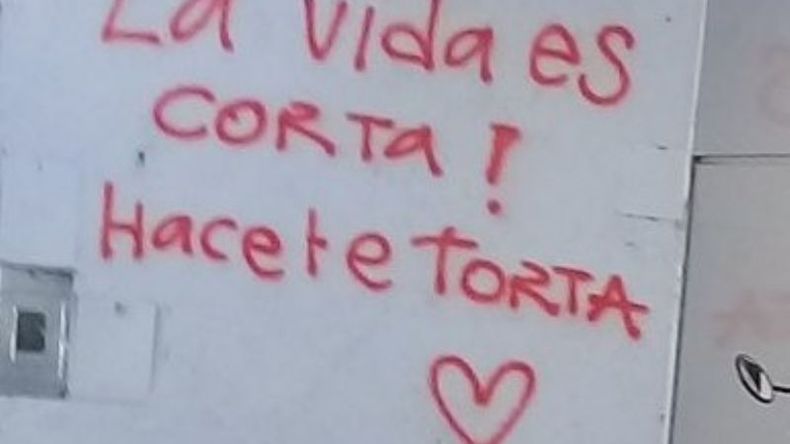 La vida es
CORTa!
Hacete TORTA